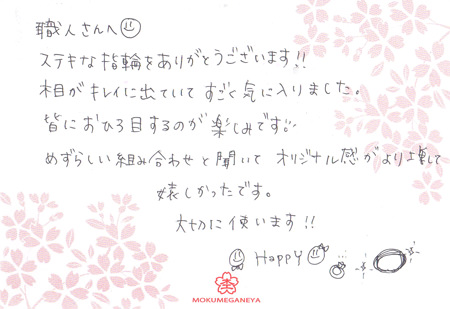 職人さんへ
ステキな指輪をありがとうございます!!
木目がキレイに出ていてすごく気に入りました。
皆におひろ目するのが楽しみです。
めずらしい組み合わせと聞いてオリジナル感がより増して
嬉しかったです。
大切に使います!!
HAPPY
MOKUMEGANEYA